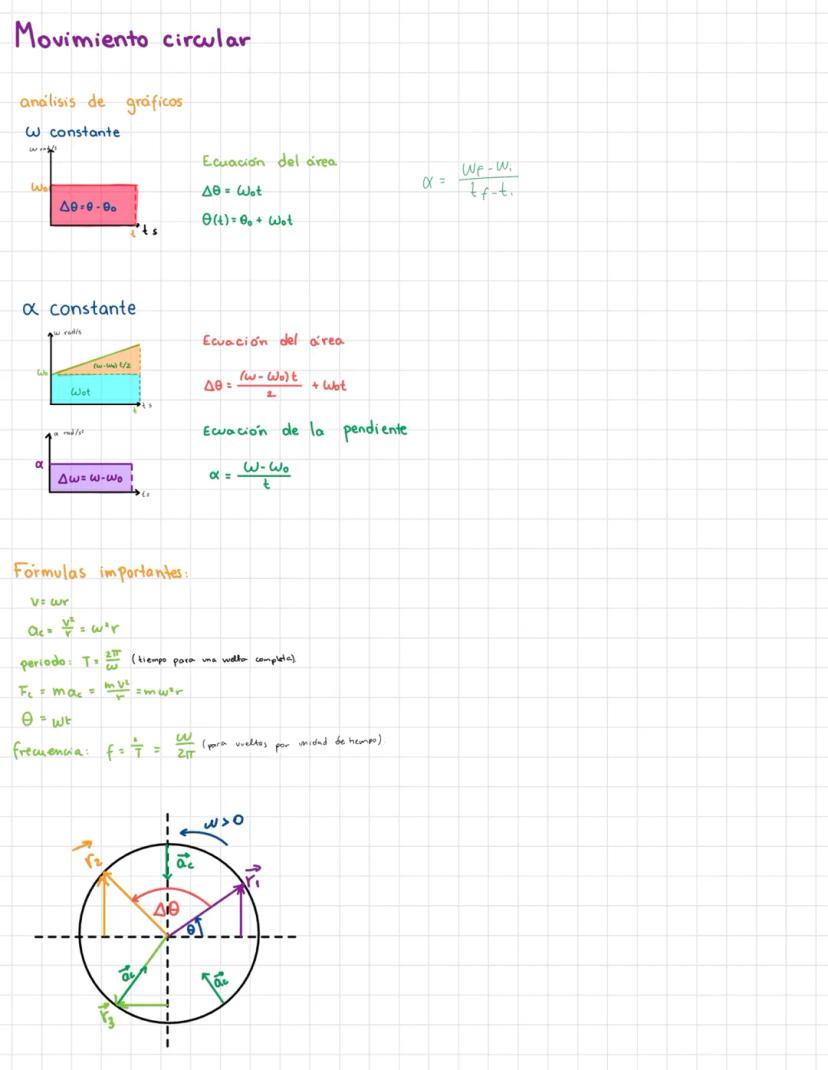 Movimiento circular
análisis de gráficos
ω constante
ω rad/s
ω₀
Δθ = θ - θ₀
t
t s
Ecuación del área
Δθ = ω₀t
θ(t) = θ₀ + ω₀t
α = (ωF - ωi) / (tF - ti)
α constante
ω rad/s
ω₀
(ω-ω₀)t/2
ω₀t
t
t s
Ecuación del área
Δθ = (ω - ω₀)t / 2 + ω₀t
α rad/s²
α
Δω = ω-ω₀
t s
Ecuación de la pendiente
α = (ω - ω₀) / t
Fórmulas importantes:
v = ωr
ac = v²/r = ω²r
periodo: T = 2π/ω (tiempo para una vuelta completa)
Fc = mac = mv²/r = mω²r
θ = ωt
frecuencia: f = 1/T = ω/2π (para vueltas por unidad de tiempo)
ω > 0
r₂
ac
r₁
Δθ
θ
ac
ac
r₃